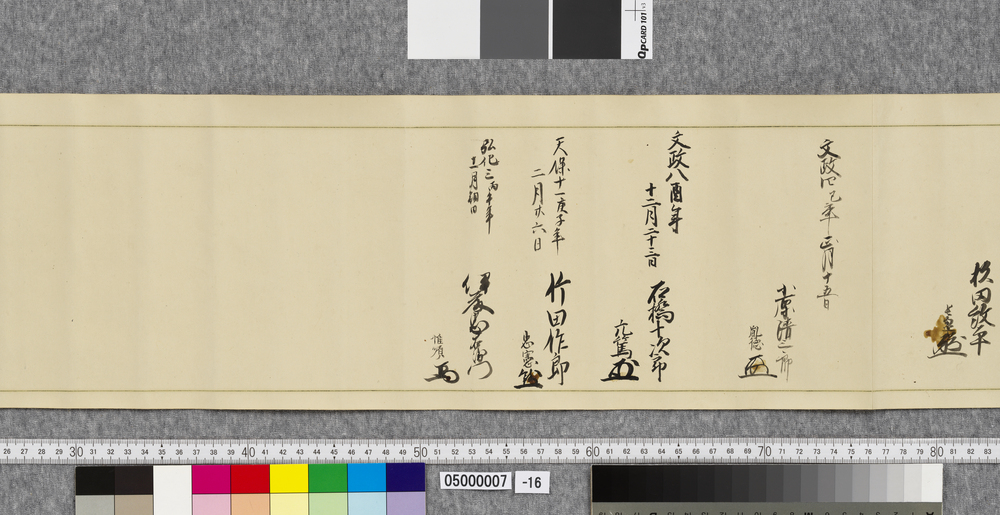 牧田政平
文政四巳年 正月十五日
小栗清三郎
胤徳
文政八酉年
十二月二十三日
石橋十次郎
元篤
天保十一庚子年
二月廿六日
竹田作郎
忠憲
弘化三丙午年
十二月朔日
伊藤忠右衛門
惟順
QPCARD 101 v3
26 27 28 29 30 31 32 33 34 35 36 37 38 39 40 41 42 43 44 45 46 47 48 49 50 51 52 53 54 55 56 57 58 59 60 61 62 63 64 65 66 67 68 69 70 71 72 73 74 75 76 77 78 79 80 81 82 83
05000007 -16